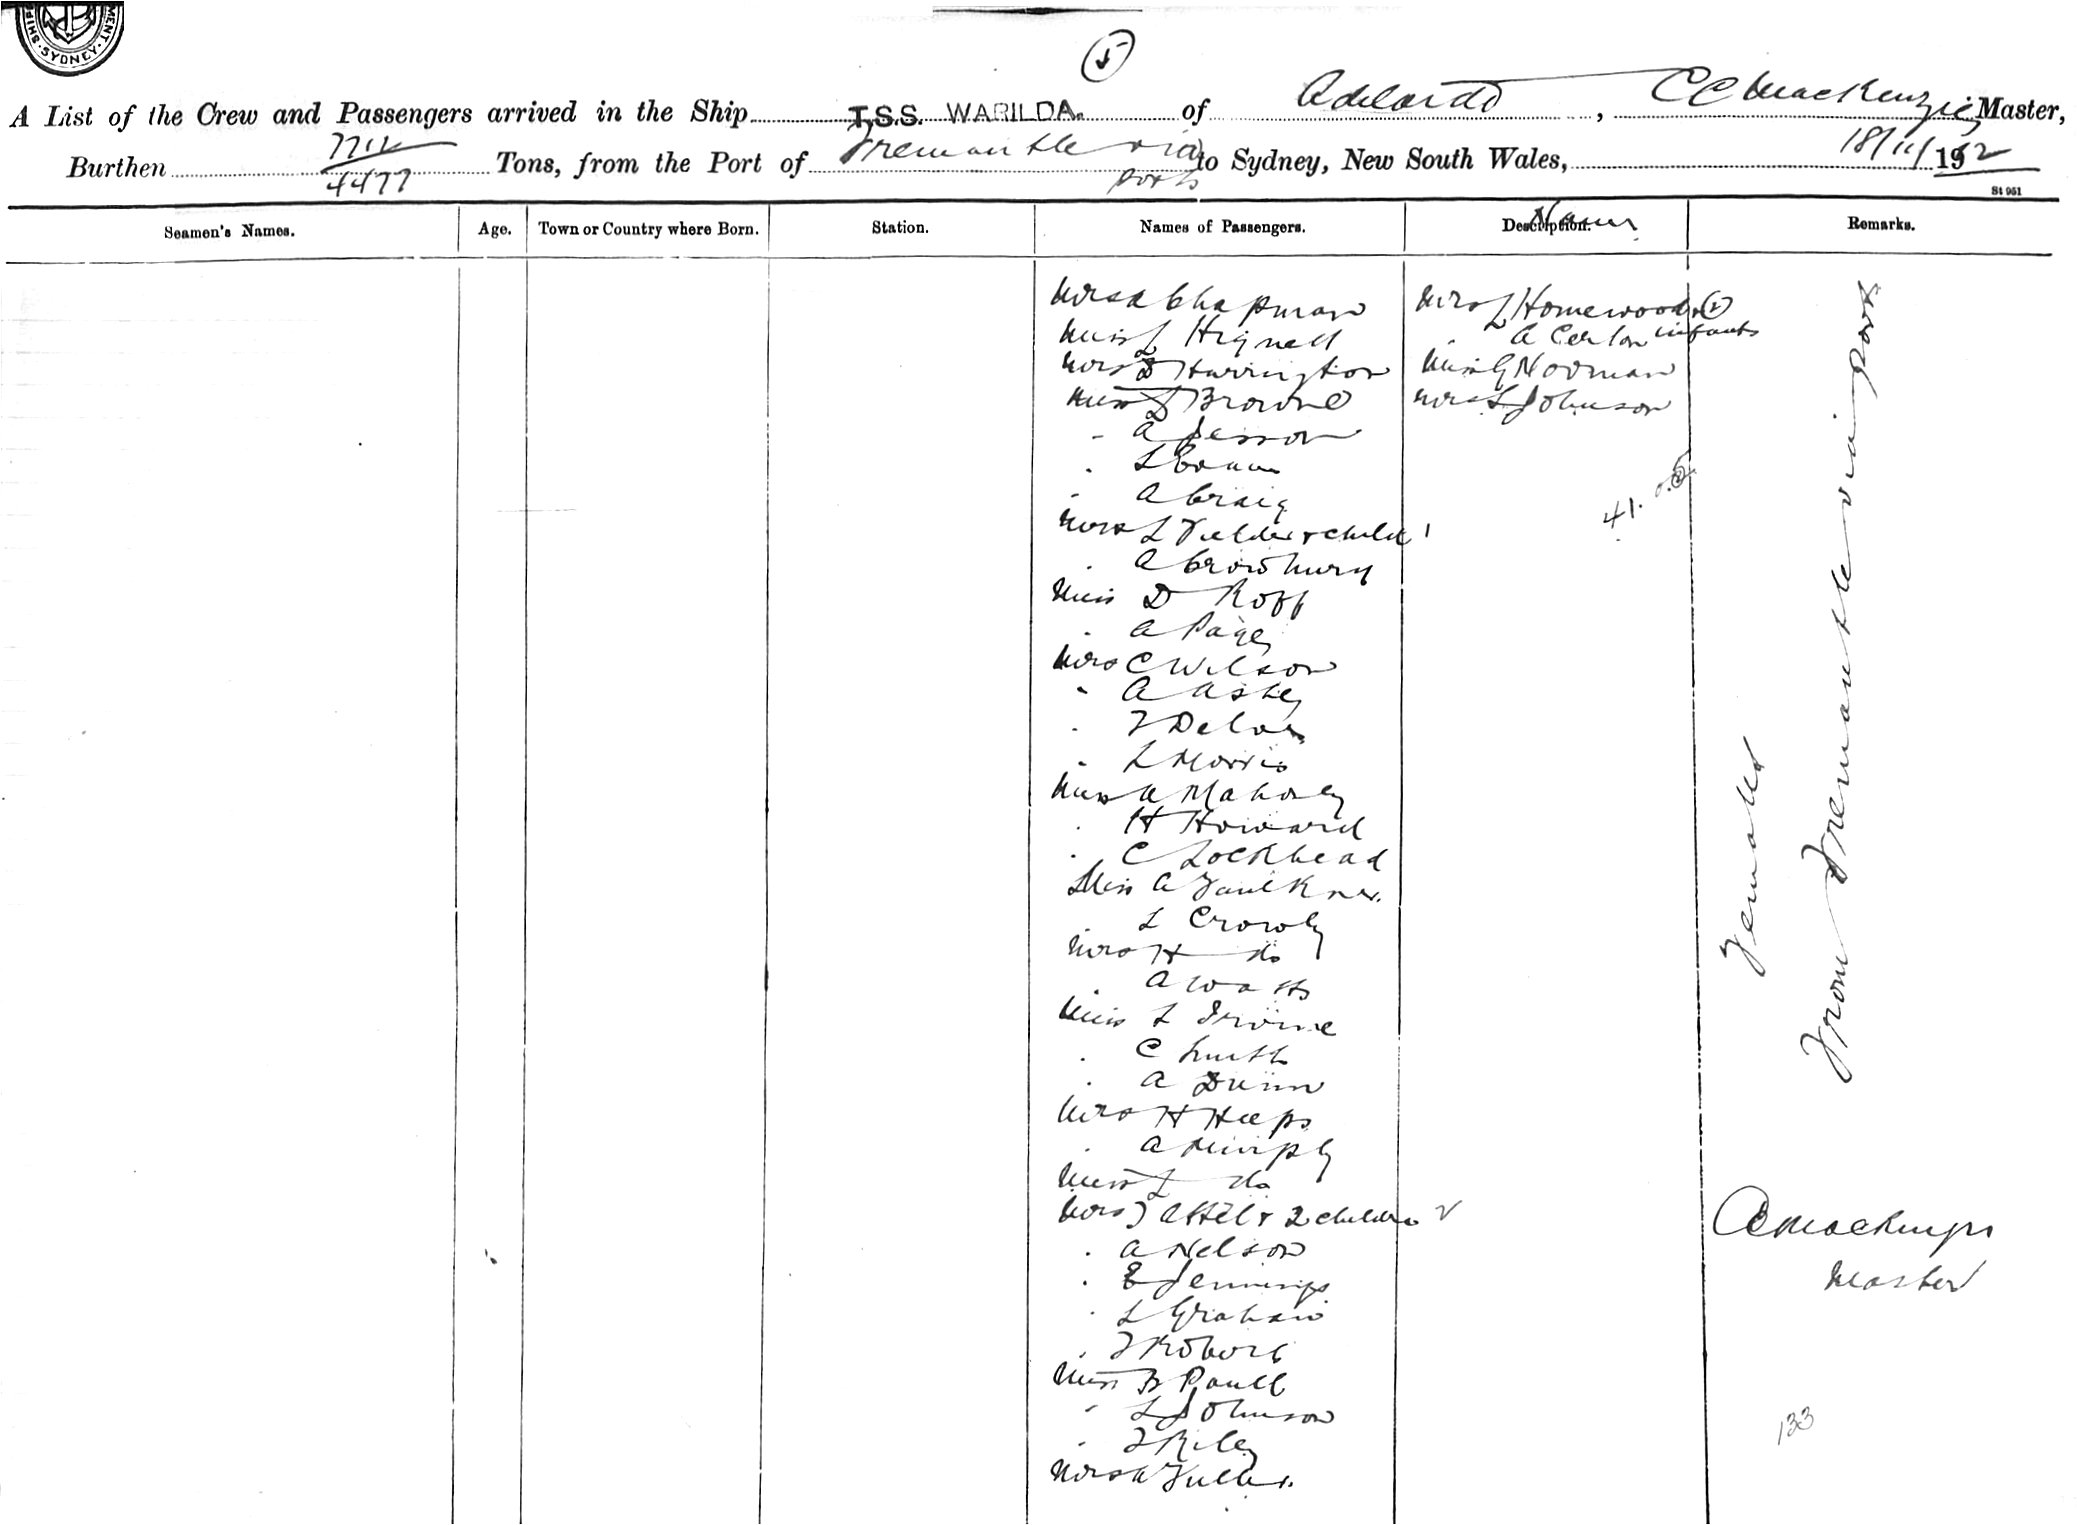 MENT
SHIP
SYDNEY
5
A List of the Crew and Passengers arrived in the Ship T.S.S. WARILDA. of Adelaide, CC MacKenzie Master,
Burthen 7714 / 4477 Tons, from the Port of Fremantle via ports to Sydney, New South Wales, 18/11/1912
St 951
Seamen's Names. Age. Town or Country where Born. Station. Names of Passengers. Description. Names Remarks.
Mrs A Chapman Mrs L Homewood & 2
Miss L Hignell " A infants
Mrs Harrington Miss G Norman
Miss L Browne Mrs L Johnson
" A Jesson
" L
" A Craig 41.
Mrs L Fielder & child 1
" A
Miss D Roff
" A Page
Mrs C Wilson
" A
" F
" L Morris
Miss A Mahony
" H Howard
" C Lockhead
Miss A Faulkner
" L Crowly
Mrs H do
" A Watts
Miss L Irvine
" C Smith
" A Dunn
Mrs H Heeps
" A Murphy
Miss L do
Mrs & 2 children 2
" A Nelson
" E Jennings
" L Graham
" F
Miss B Paull
" L Johnson
" F Riley
Mrs A Fuller.
Females
From Fremantle via ports
CC MacKenzie
Master
133